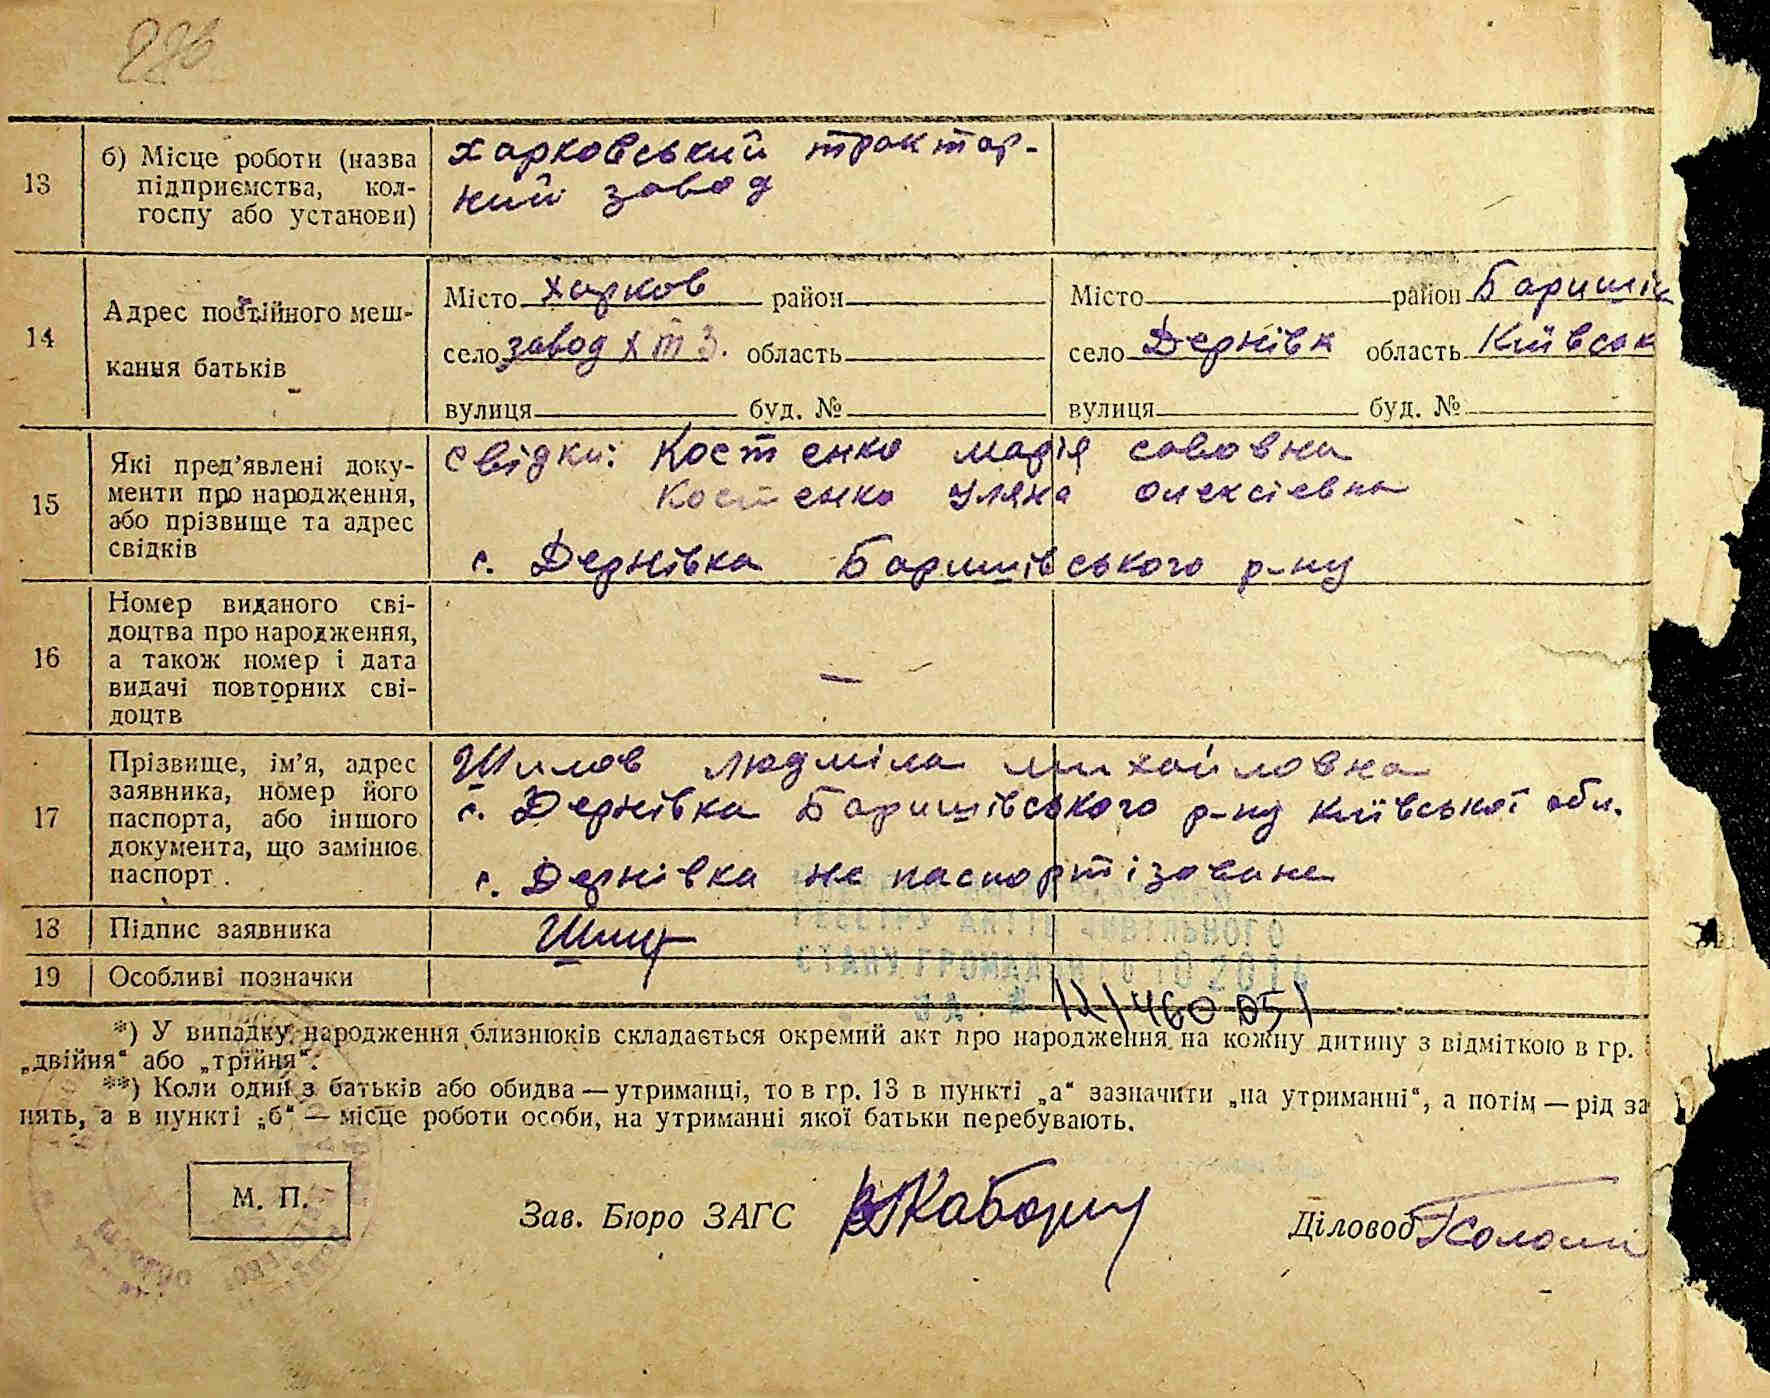 226
13
б) Місце роботи (назва
підприємства, кол-
госпу або установи)
Харковський трактор-
ний завод
14
Адрес постійного меш-
кання батьків
Місто Харков район
село завод ХТЗ. область
вулиця буд. №
Місто район Баришів
село Дернівк область Київськ
вулиця буд. №
15
Які пред’явлені доку-
менти про народження,
або прізвище та адрес
свідків
свідки: Костенко марія савовна
Костенко Уляна Олексієвна
с. Дернівка Баришівського р-ну
16
Номер виданого сві-
доцтва про народження,
а також номер і дата
видачі повторних сві-
доцтв
—
17
Прізвище, ім’я, адрес
заявника, номер його
паспорта, або іншого
документа, що замінює
паспорт.
Шилов людміла михайловна
с. Дернівка Баришівського р-ну київської обл.
с. Дернівка не паспортізоване
18 Підпис заявника
19 Особливі позначки
РЕЄСТРУ АКТІВ ЦИВІЛЬНОГО
СТАНУ ГРОМАДЯН
*) У випадку народження близнюків складається окремий акт про народження на кожну дитину з відміткою в гр.
„двійня“ або „трійня“.
**) Коли один з батьків або обидва — утриманці, то в гр. 13 в пункті „а“ зазначити „на утриманні“, а потім — рід за
нять, а в пункті „б“ — місце роботи особи, на утриманні якої батьки перебувають.
М. П.
Зав. Бюро ЗАГС
Діловод